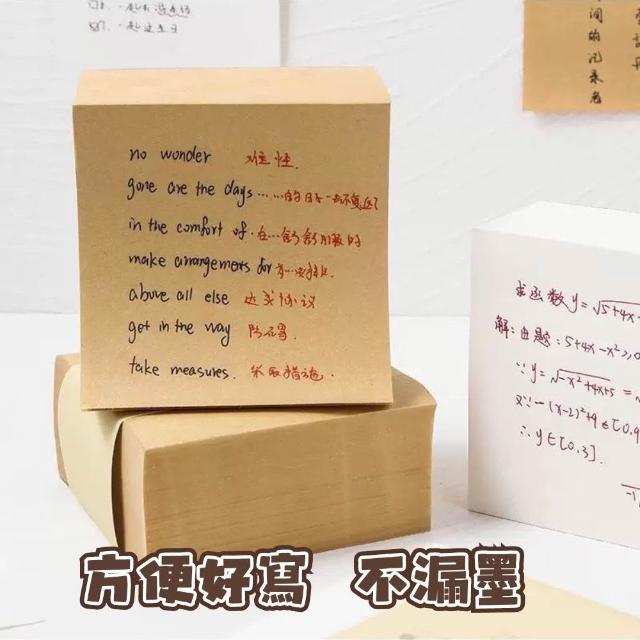 一起去游乐场
一起过生日
间的记录者
no wonder 难怪.
gone are the days... ...的日子一去不复返了
in the comfort of. 在...舒舒服服的
make arrangements for 为...安排.
above all else 达成协议
get in the way 阻碍.
take measures. 采取措施.
求函数 y=√5+4x-
解:由题:5+4x-x²≥0
∵y=√-x²+4x+5 =
又∵-(x-2)²+9∈[0,9
∴y∈[0.3].
方便好寫 不漏墨